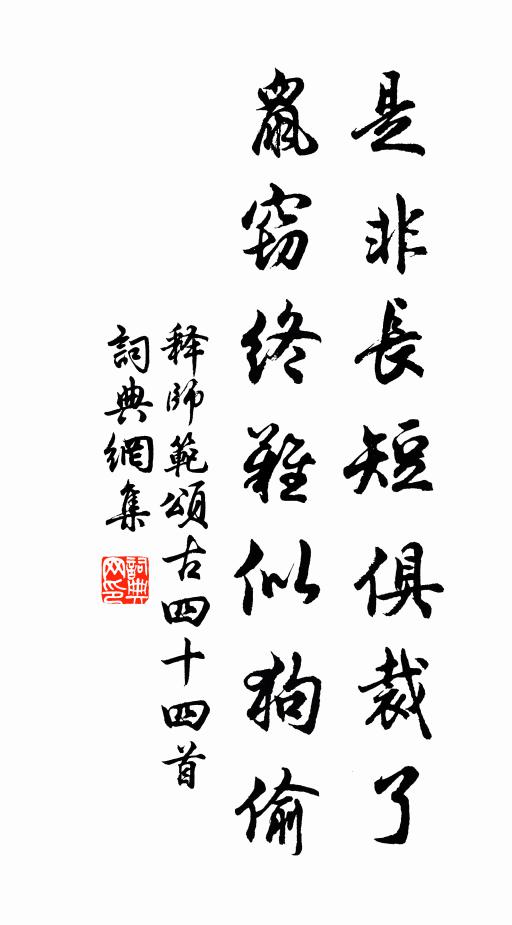 是非長短俱裁了
鼠窃終難似狗偷
释師範頌古四十四首
詞典網集
詞典网印